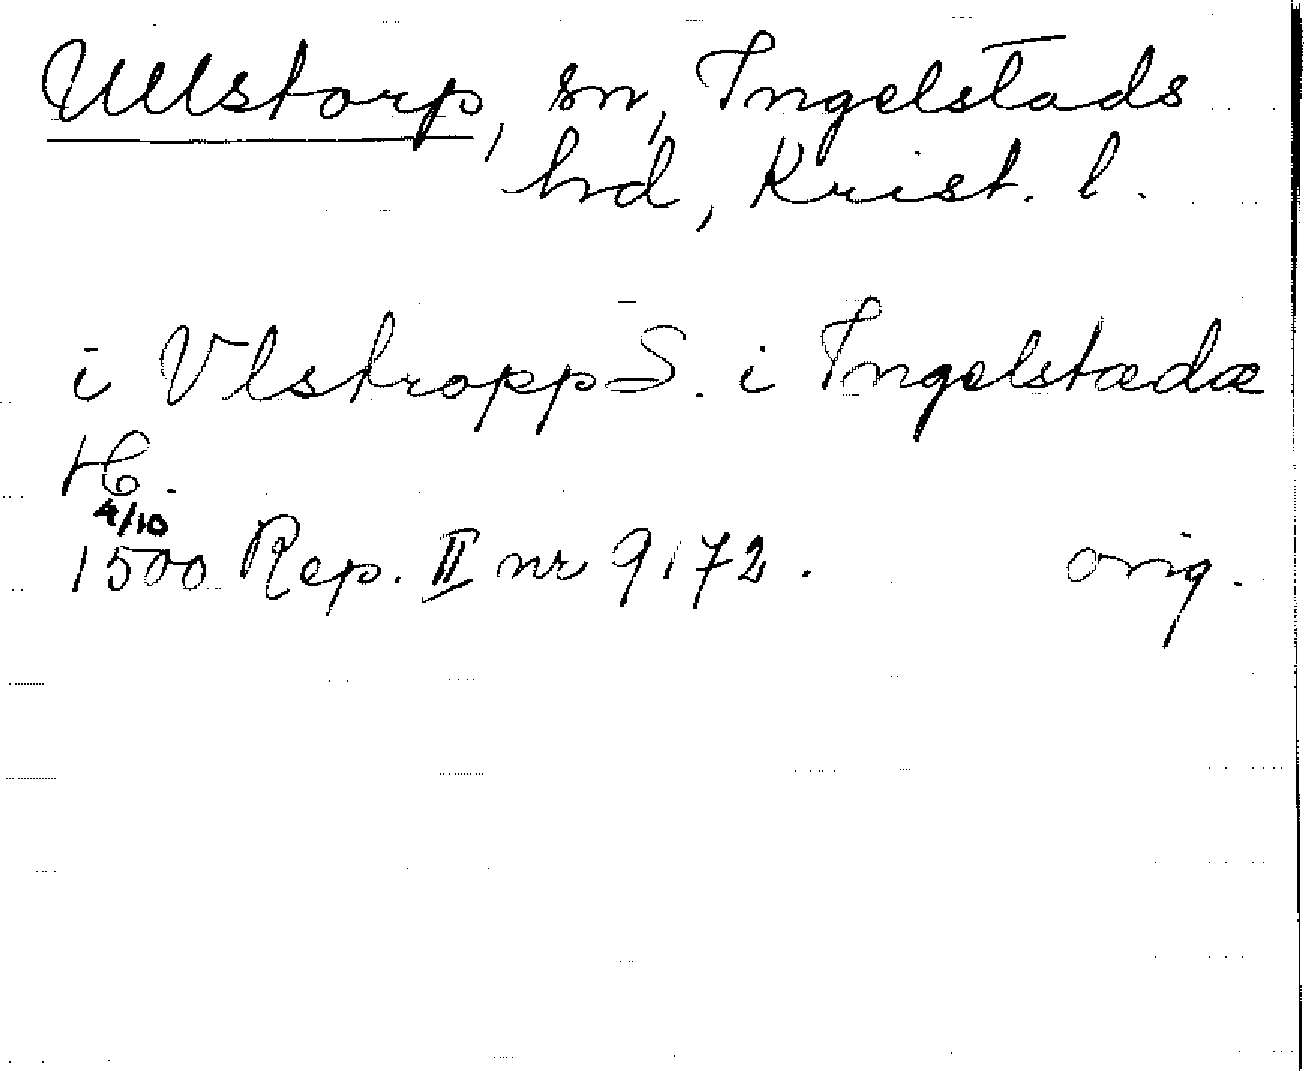 Ullstorp, sn, Ingelstads
hd, Krist. l.
i Vlstropp S. i Ingelstædæ
H.
4/10
1500 Rep. II nr 9172. orig.